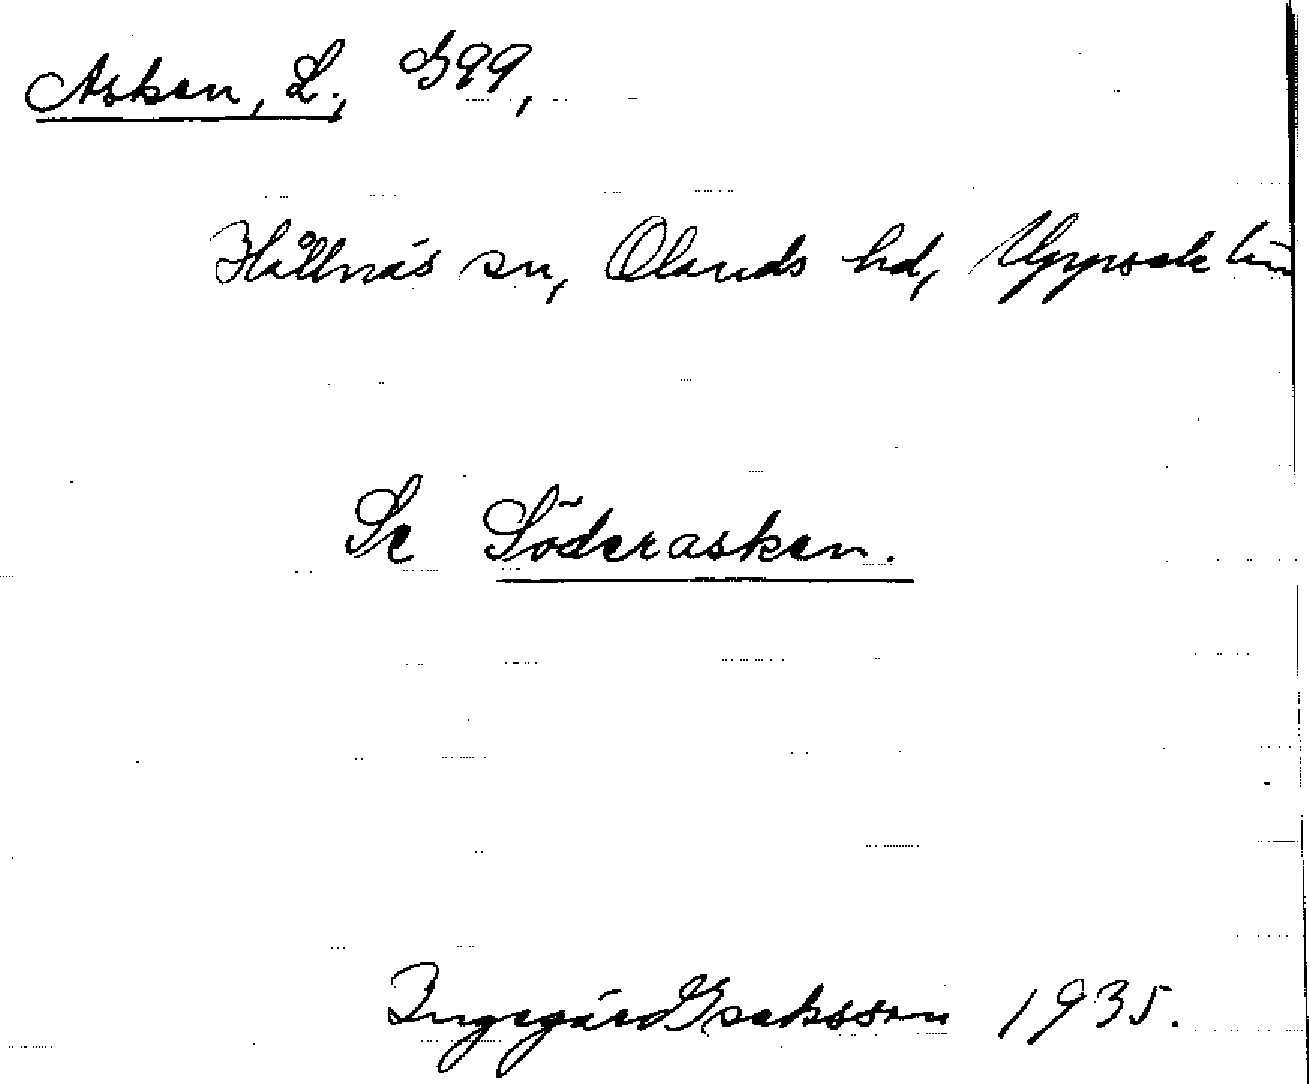 Asken, L., 399,
Hållnäs sn, Olands hd, Uppsala län
Se Söderasken.
Ingegärd Isaksson 1935.